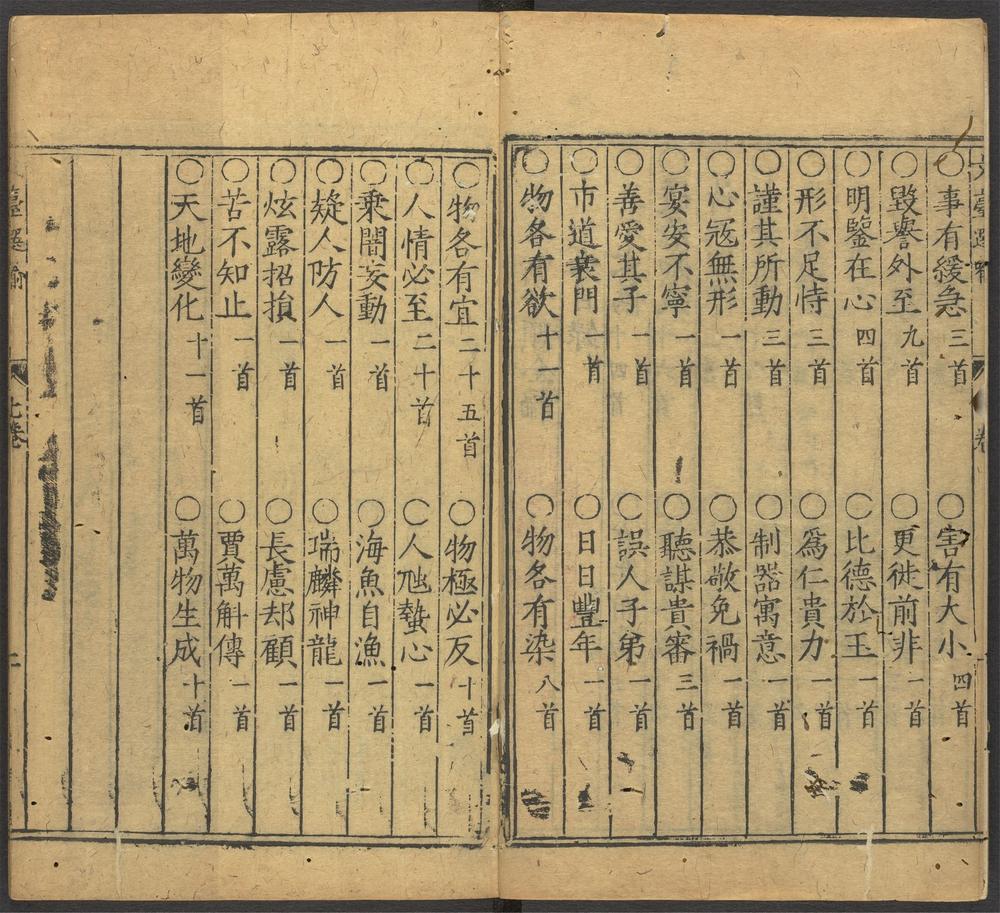 ○事有緩急 三首 ○害有大小 四首
○毀譽外至 九首 ○更徙前非 一首
○明鑒在心 四首 ○比德於玉 一首
○形不足恃 三首 ○爲仁貴力 一首
○謹其所動 三首 ○制器寓意 一首
○心冦無形 一首 ○恭敬免禍 一首
○宴安不寧 一首 ○聽謀貴審 三首
○善愛其子 一首 ○誤人子弟 一首
○市道衰門 一首 ○日日豐年 一首
○物各有欲 十一首 ○物各有染 八首
○物各有宜 二十五首 ○物極必反 十首
○人情必至 二十首 ○人虺蝥心 一首
○乗闇妄動 一首 ○海魚自漁 一首
○疑人防人 一首 ○瑞麟神龍 一首
○炫露招損 一首 ○長慮却顧 一首
○苦不知止 一首 ○賈萬斛傳 一首
○天地變化 十一首 ○萬物生成 十首
喻 七卷
二